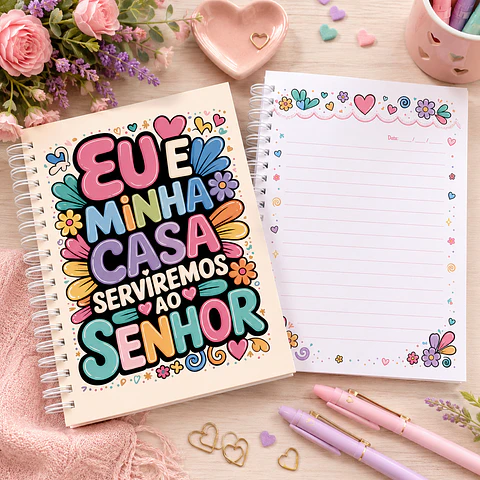 EU E
MINHA
CASA
SERVIREMOS
AO
SENHOR
Data: ___/___/___